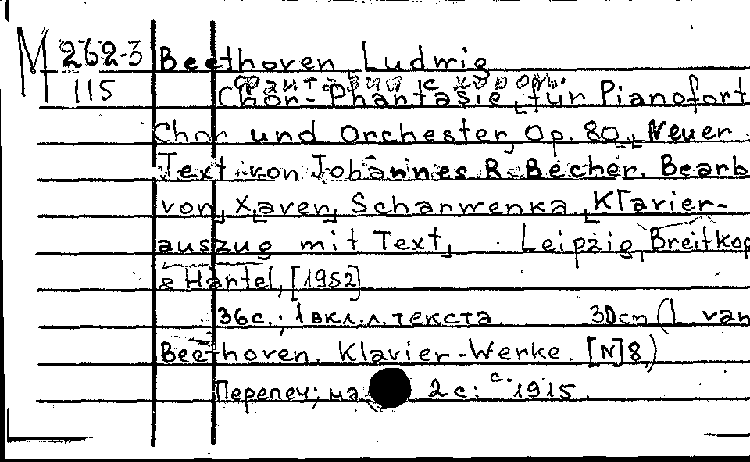 M 262-3
115
Beethoven Ludwig
Фантазия с хором.
Chor-Phantasie, für Pianofort
Chor und Orchester, Op. 80. Neuer
Text von Johannes R. Becher. Bearb
von Xaver Scharwenka Klavier-
auszug mit Text. Leipzig, Breitkop
& Härtel, [1952]
36с.; 1 вкл.л. текста 30cm (L. van
Beethoven. Klavier-Werke. [N] 8)
Перепеч; на 2 с: с. 1915.